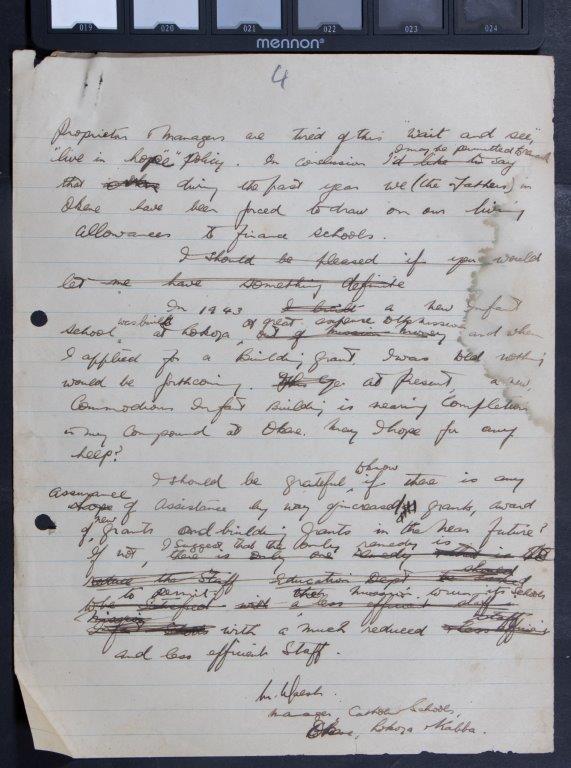 019 020 021 022 023 024
mennon
4
Proprietors & Managers are tired of this "wait and see",
"live in hope" policy. In conclusion I'd like to say
I may be permitted to
that during the past year we (the Fathers) in
Okene have been forced to draw on our living
allowances to finance schools.
I should be pleased if you would
let me have something definite
In 1943 I built a new infant
school was built at Lokoja, at great expense to the mission
out of mission money and when
I applied for a Building grant, I was told nothing
would be forthcoming. at Present a new,
Commodious Infant Building is nearing Completion
in my Compound at Okene. May I hope for any
help?
I should be grateful to know if there is any
assurance
hope of Assistance by way of increased grants, award
of new grants and building grants in the near future?
If not, I suggest that the only remedy is
there is only one remedy
reduce the Staff Education Dept
to permit the mission to run its Schools
with a less efficient staff
with a "much reduced
and less efficient Staff.
M. Walsh.
Manager, Catholic Schools,
Okene, Lokoja & Kabba.